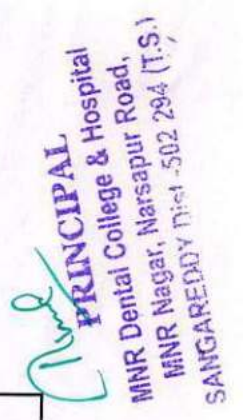 PRINCIPAL
MNR Dental College & Hospital
MNR Nagar, Narsapur Road,
SANGAREDDY Dist -502 294 (T.S.)